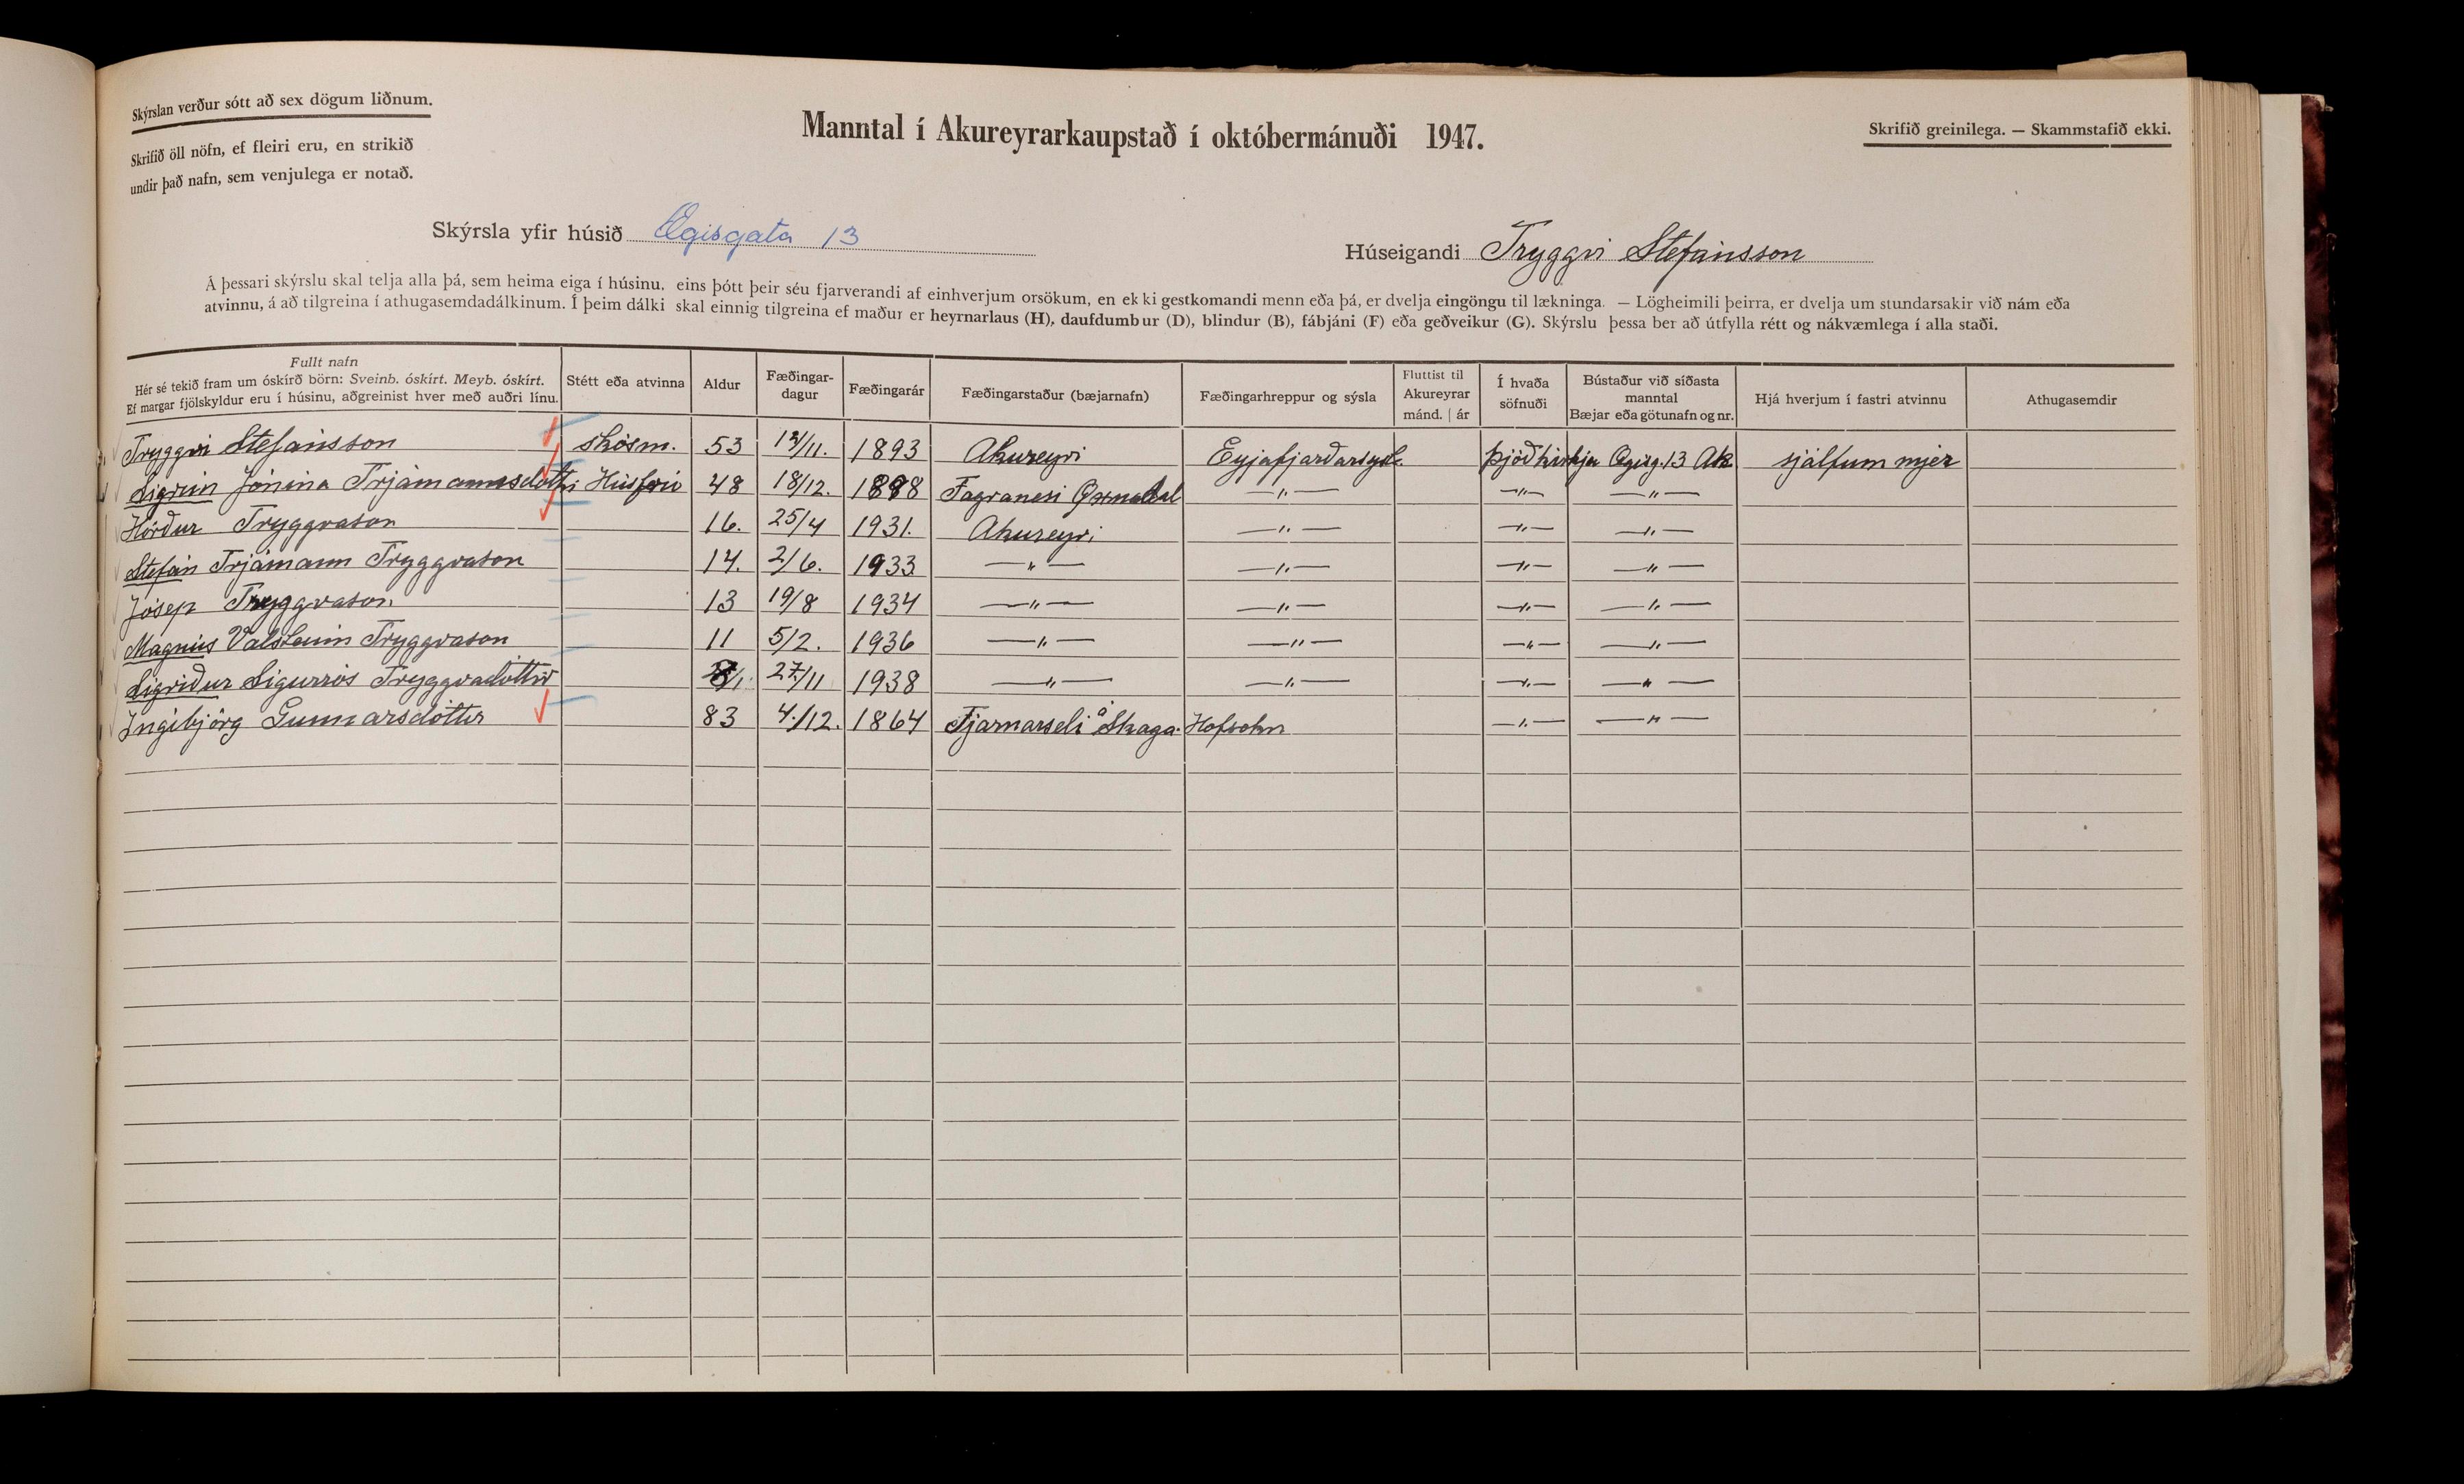 Skýrslan verður sótt að sex dögum liðnum.
Skrifið öll nöfn, ef fleiri eru, en strikið
undir það nafn, sem venjulega er notað.
Manntal í Akureyrarkaupstað í októbermánuði 1947.
Skrifið greinilega. — Skammstafið ekki.
Skýrsla yfir húsið Ægisgata 13
Húseigandi Tryggvi Stefánsson
Á þessari skýrslu skal telja alla þá, sem heima eiga í húsinu, eins þótt þeir séu fjarverandi af einhverjum orsökum, en ekki gestkomandi menn eða þá, er dvelja eingöngu til lækninga. — Lögheimili þeirra, er dvelja um stundarsakir við nám eða
atvinnu, á að tilgreina í athugasemdadálkinum. Í þeim dálki skal einnig tilgreina ef maður er heyrnarlaus (H), daufdumbur (D), blindur (B), fábjáni (F) eða geðveikur (G). Skýrslu þessa ber að útfylla rétt og nákvæmlega í alla staði.
Fullt nafn
Hér sé tekið fram um óskírð börn: Sveinb. óskírt. Meyb. óskírt.
Ef margar fjölskyldur eru í húsinu, aðgreinist hver með auðri línu.
Stétt eða atvinna
Aldur
Fæðingar-
dagur
Fæðingarár
Fæðingarstaður (bæjarnafn)
Fæðingarhreppur og sýsla
Fluttist til
Akureyrar
mánd. | ár
Í hvaða
söfnuði
Bústaður við síðasta
manntal
Bæjar eða götunafn og nr.
Hjá hverjum í fastri atvinnu
Athugasemdir
Tryggvi Stefánsson skósm. 53 12/11. 1893 Akureyri Eyjafjarðarsysl. Þjóðkirkja Ægisg. 13 Ak. sjálfum mjer
Sigrún Jónína Trjámannsdóttir Húsfrú 48 18/12. 1898 Fagranesi Öxnadal —"— —"— —"—
Hörður Tryggvason 16. 25/4 1931. Akureyri —"— —"— —"—
Stefán Trjámann Tryggvason 14. 2/6. 1933 —"— —"— —"— —"—
Jósep Tryggvason 13 19/8 1934 —"— —"— —"— —"—
Magnús Valsteinn Tryggvason 11 5/2. 1936 —"— —"— —"— —"—
Sigríður Sigurrós Tryggvadóttir 27/11 1938 —"— —"— —"— —"—
Ingibjörg Gunnarsdóttir 83 4./12. 1864 Tjarnarseli á Skaga. Hofsókn —"— —"—